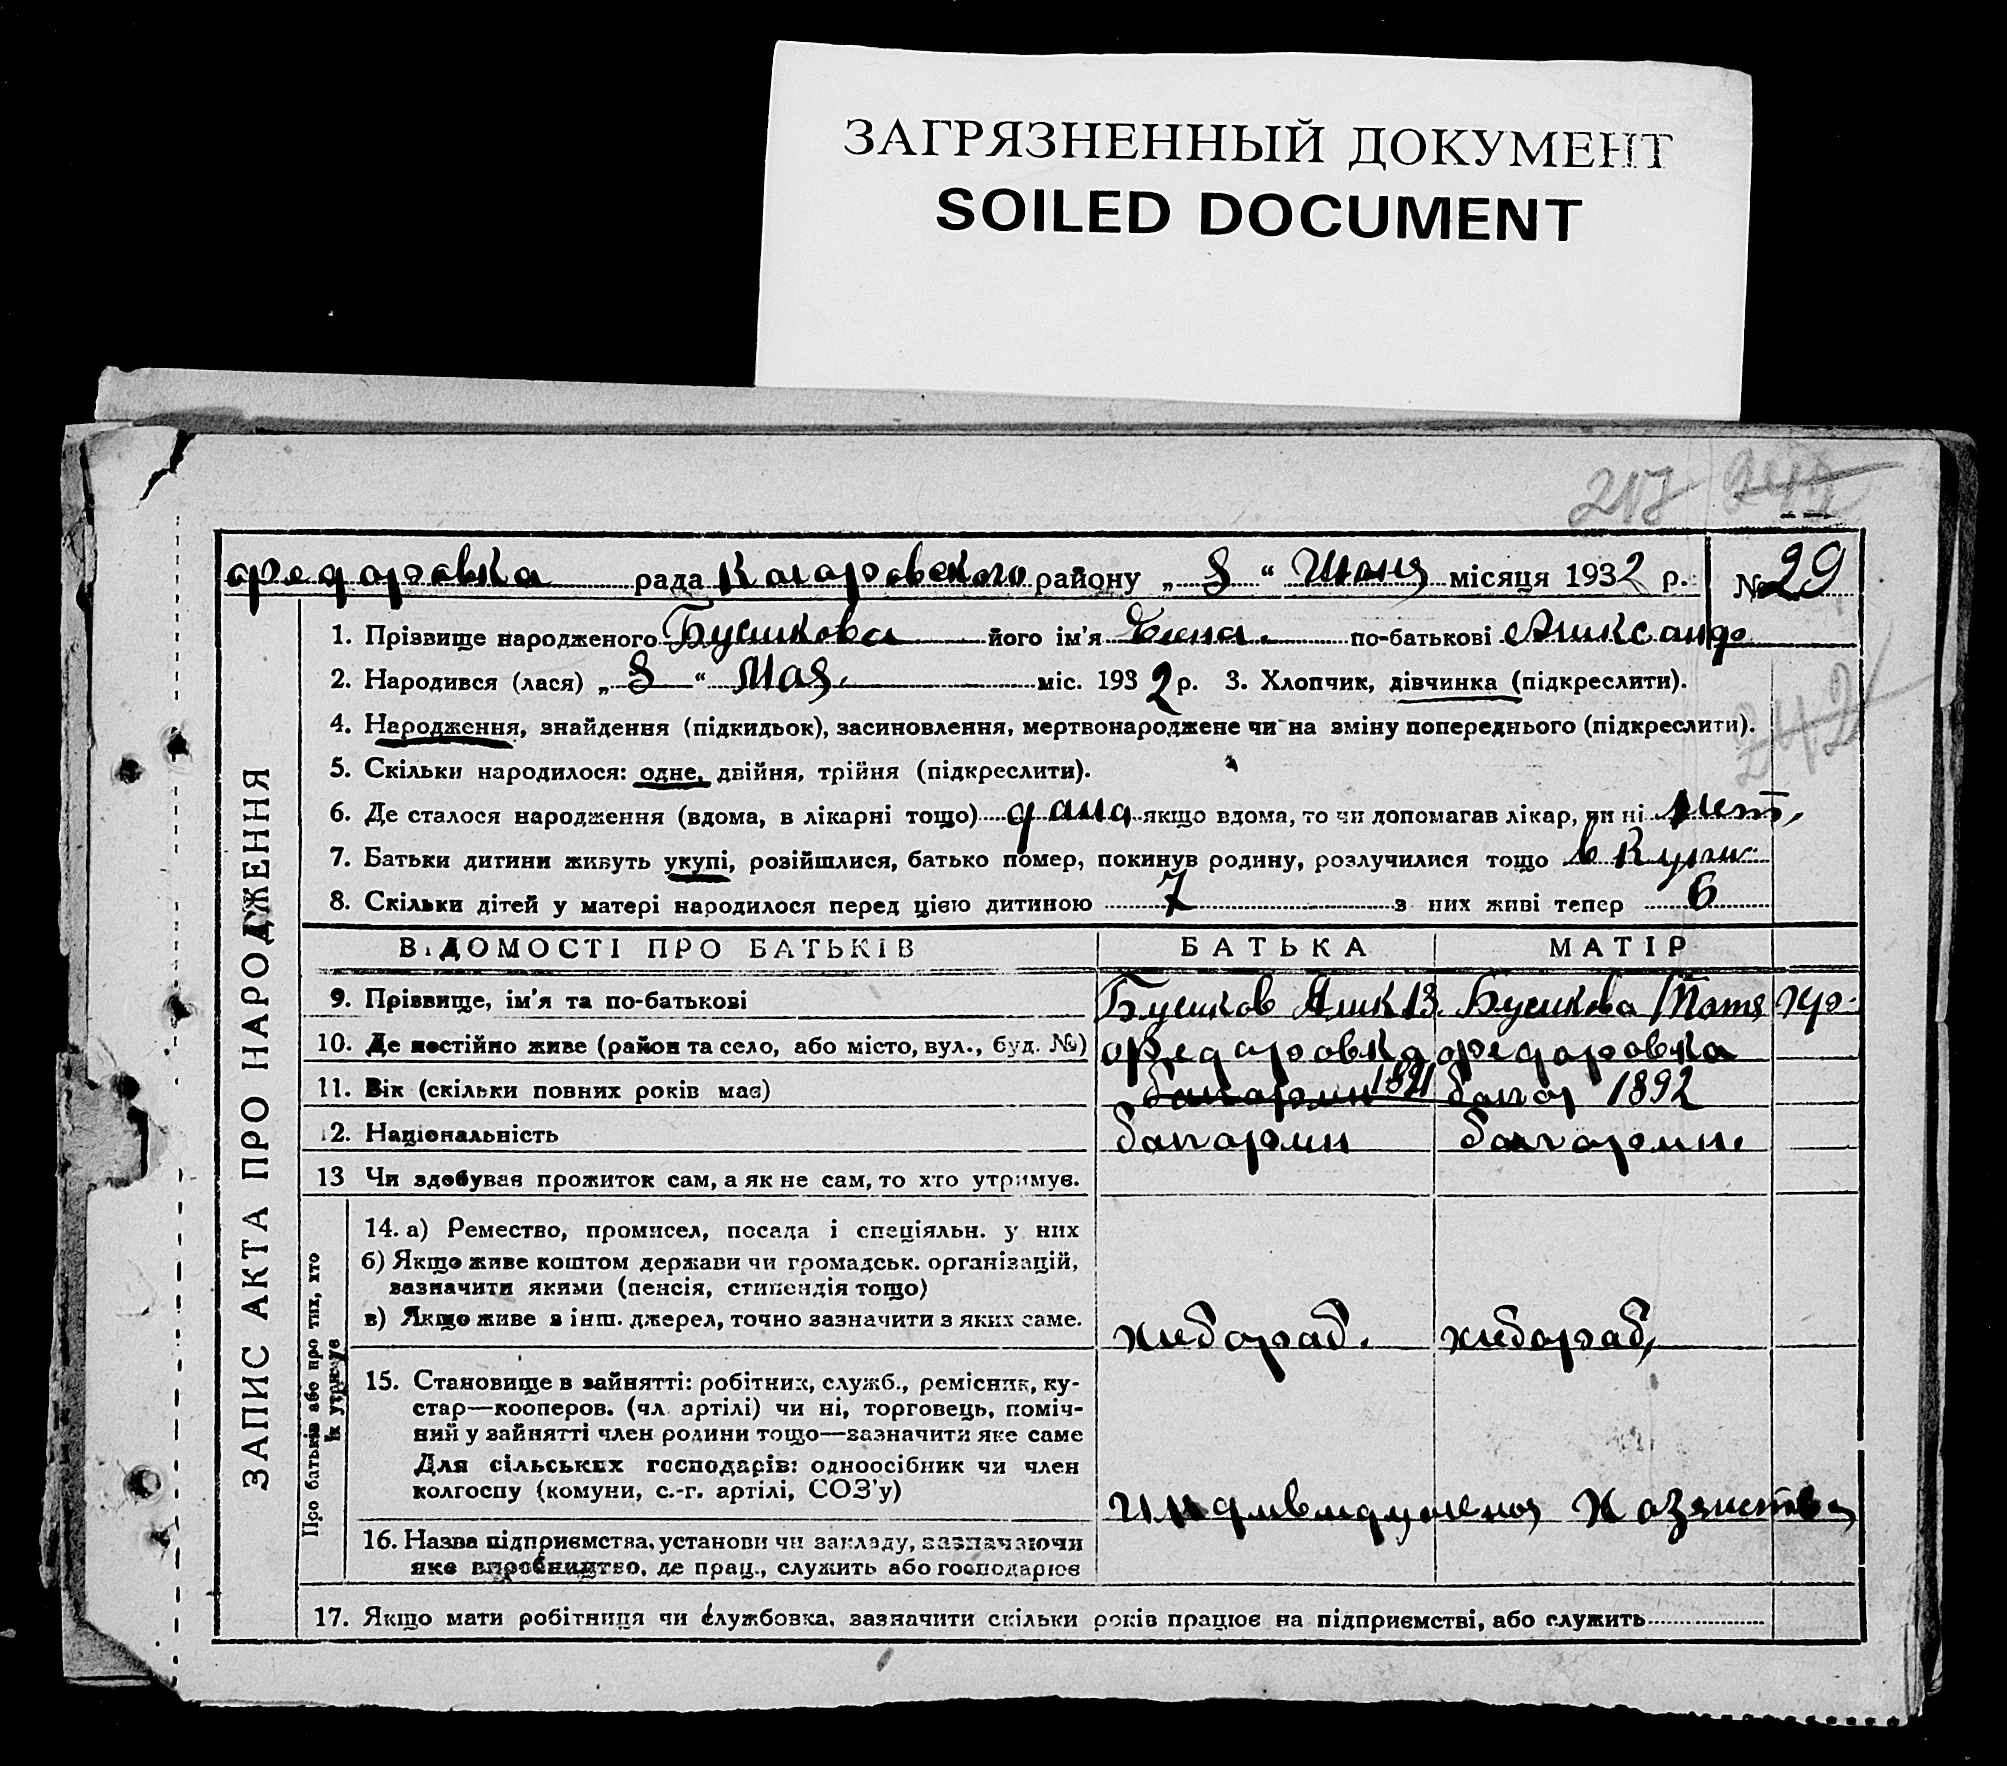 ЗАГРЯЗНЕННЫЙ ДОКУМЕНТ
SOILED DOCUMENT
217
федоровка рада Коларовского району „ 8 “ Июня місяця 1932 р. № 29
1. Прізвище народженого Бушкова його ім'я Елена. по-батькові Александр
2. Народився (лася) „ 8 “ Мая. міс. 1932 р. 3. Хлопчик, дівчинка (підкреслити).
242
4. Народження, знайдення (підкидьок), засиновлення, мертвонароджене чи на зміну попереднього (підкреслити).
5. Скільки народилося: одне, двійня, трійня (підкреслити).
6. Де сталося народження (вдома, в лікарні тощо) дома якщо вдома, то чи допомагав лікар, чи ні нет,
7. Батьки дитини живуть укупі, розійшлися, батько помер, покинув родину, розлучилися тощо
8. Скільки дітей у матері народилося перед цією дитиною 7 з них живі тепер 6
ВІДОМОСТІ ПРО БАТЬКІВ БАТЬКА МАТІР
9. Прізвище, ім'я та по-батькові Бушков Бушкова
10. Де постійно живе (район та село, або місто, вул., буд. №) федоровка федоровка
11. Вік (скільки повних років має) болгарин 1891 болгар 1892
12. Національність болгарин болгарин.
13 Чи здобував прожиток сам, а як не сам, то хто утримув.
14. а) Ремество, промисел, посада і спеціяльн. у них
б) Якщо живе коштом держави чи громадськ. організацій,
зазначити якими (пенсія, стипендія тощо)
в) Якщо живе з інш. джерел, точно зазначити з яких саме. хлебораб. хлебораб,
15. Становище в зайнятті: робітник, служб., ремісник, ку-
стар—кооперов. (чл. артілі) чи ні, торговець, поміч-
ний у зайнятті член родини тощо—зазначити яке саме
Для сільських господарів: одноосібник чи член
колгоспу (комуни, с.-г. артілі, СОЗ'у)
16. Назва підприємства, установи чи закладу, зазначаючи
яке виробництво, де прац., служить або господарює
17. Якщо мати робітниця чи службовка, зазначити скільки років працює на підприємстві, або служить
ЗАПИС АКТА ПРО НАРОДЖЕННЯ
Про батьків або про тих, хто
їх утримує